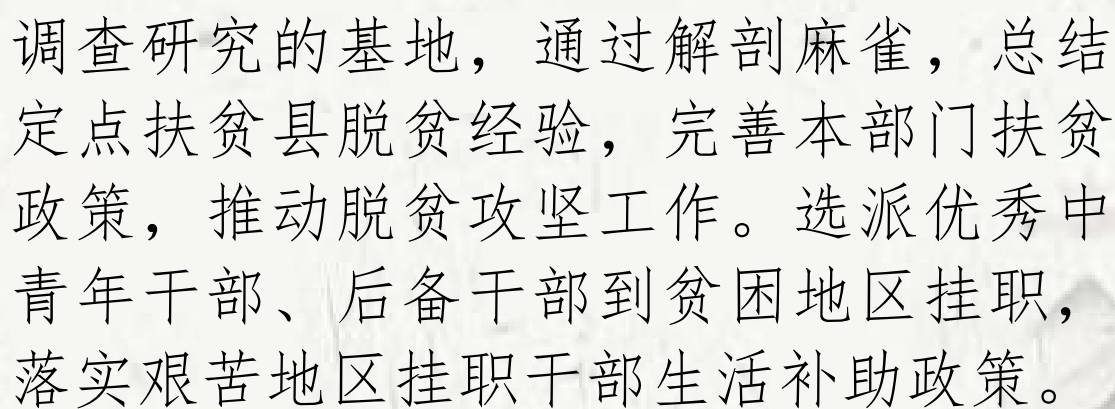 调查研究的基地，通过解剖麻雀，总结
定点扶贫县脱贫经验，完善本部门扶贫
政策，推动脱贫攻坚工作。选派优秀中
青年干部、后备干部到贫困地区挂职，
落实艰苦地区挂职干部生活补助政策。